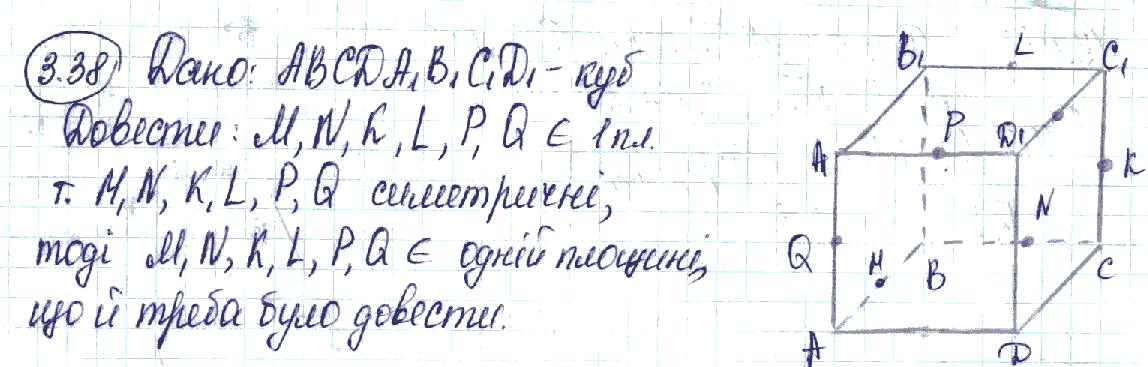 3.38 Дано: ABCDA₁B₁C₁D₁ – куб
Довести: M, N, K, L, P, Q ∈ 1 пл.
т. M, N, K, L, P, Q симетричні,
тоді M, N, K, L, P, Q ∈ одній площині,
що й треба було довести.
B₁ L C₁
A P D₁ K
N
Q M B C
A D